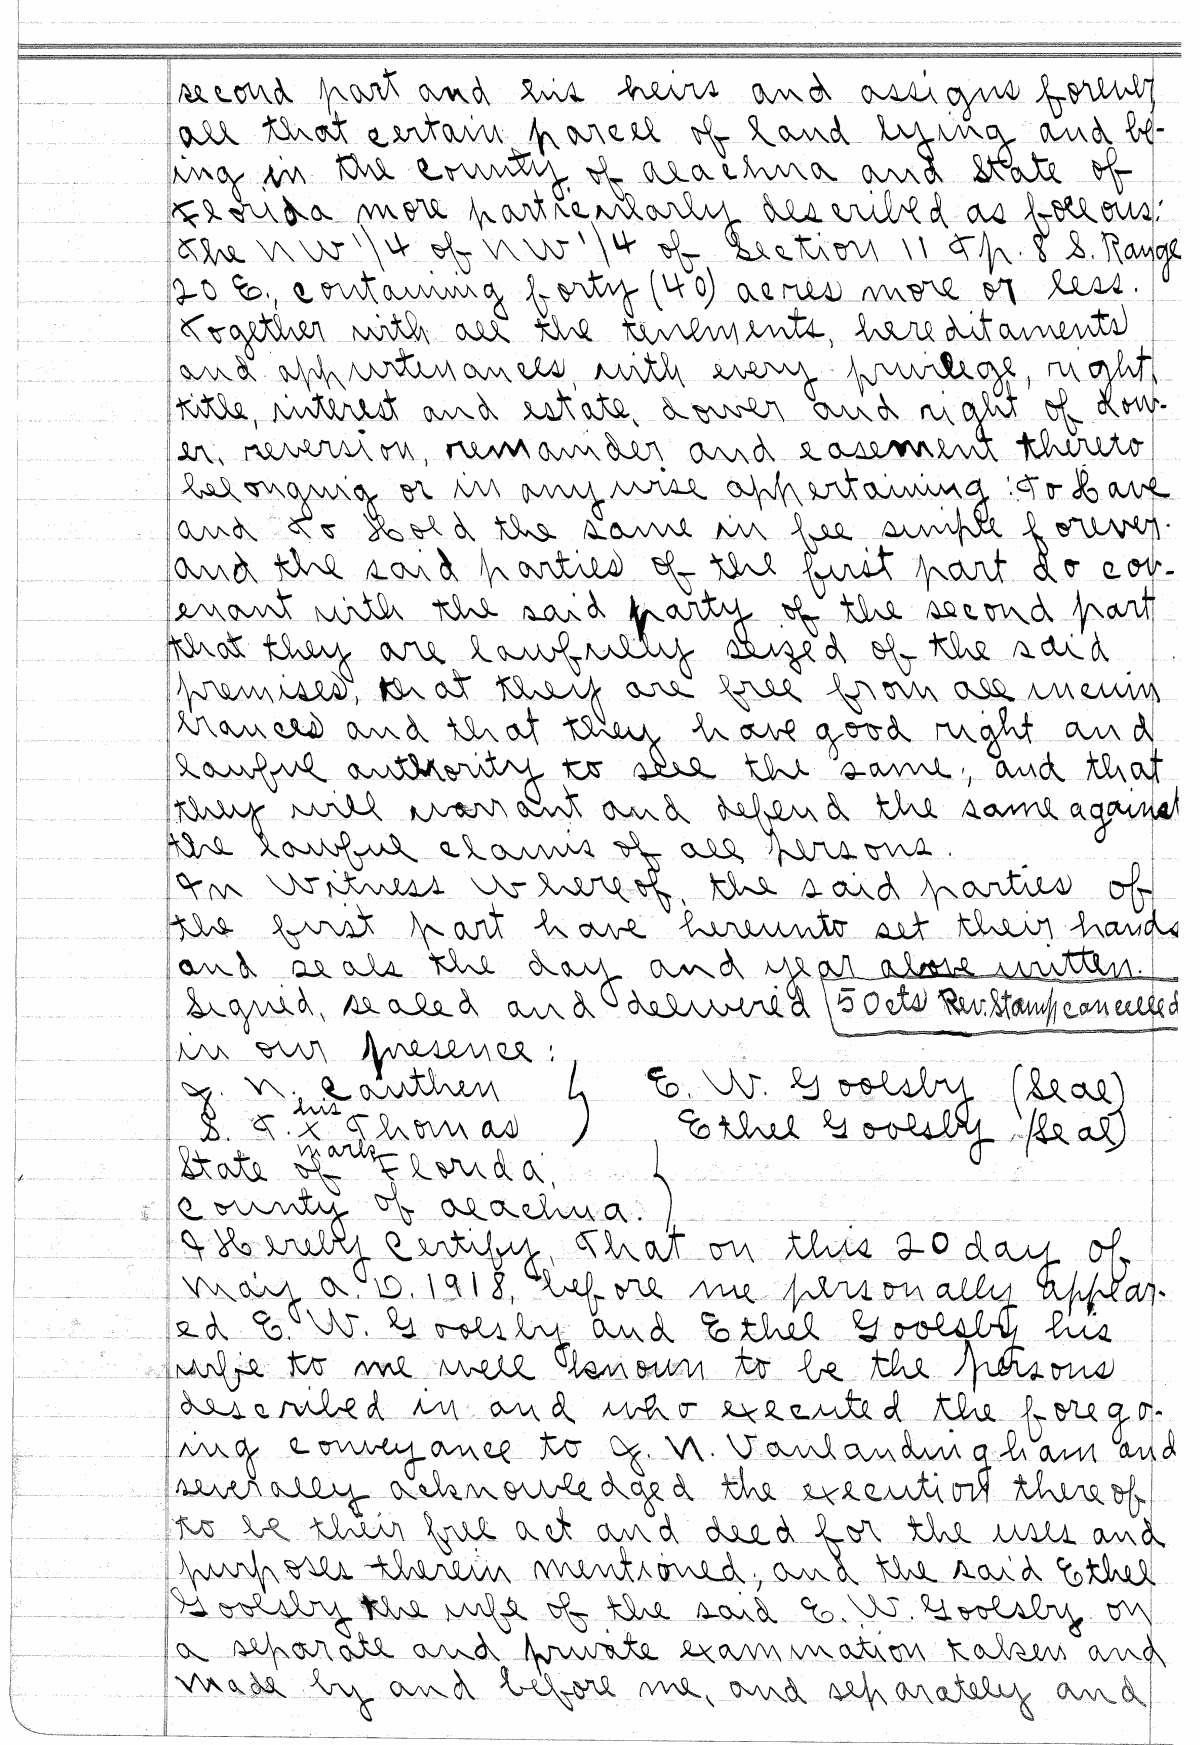 second part and his heirs and assigns forever
all that certain parcel of land lying and be-
ing in the county of Alachua and State of
Florida more particularly described as follows:
The NW 1/4 of NW 1/4 of Section 11 Tp. 8 S. Range
20 E., containing forty (40) acres more or less.
Together with all the tenements, hereditaments
and appurtenances, with every privilege, right,
title, interest and estate, dower and right of dow-
er, reversion, remainder and easement thereto
belonging or in anywise appertaining: To Have
and To Hold the same in fee simple forever.
And the said parties of the first part do cov-
enant with the said party of the second part
that they are lawfully seized of the said
premises, that they are free from all incum
brances and that they have good right and
lawful authority to sell the same; and that
they will warrant and defend the same against
the lawful claims of all persons.
In Witness Whereof, the said parties of
the first part have hereunto set their hands
and seals the day and year above written.
Signed, sealed and delivered (50cts Rev. Stamp cancelled
in our presence:
J. N. Cauthen } E. W. Goolsby (Seal)
his
S. T. x Thomas ) Ethel Goolsby (Seal)
mark
State of Florida,
County of Alachua. }
I Hereby Certify, That on this 20 day of
May A. D. 1918, before me personally appear-
ed E. W. Goolsby and Ethel Goolsby his
wife to me well known to be the persons
described in and who executed the forego-
ing conveyance to J. N. Vanlandingham and
severally acknowledged the execution thereof
to be their free act and deed for the uses and
purposes therein mentioned; and the said Ethel
Goolsby the wife of the said E. W. Goolsby on
a separate and private examination taken and
made by and before me, and separately and